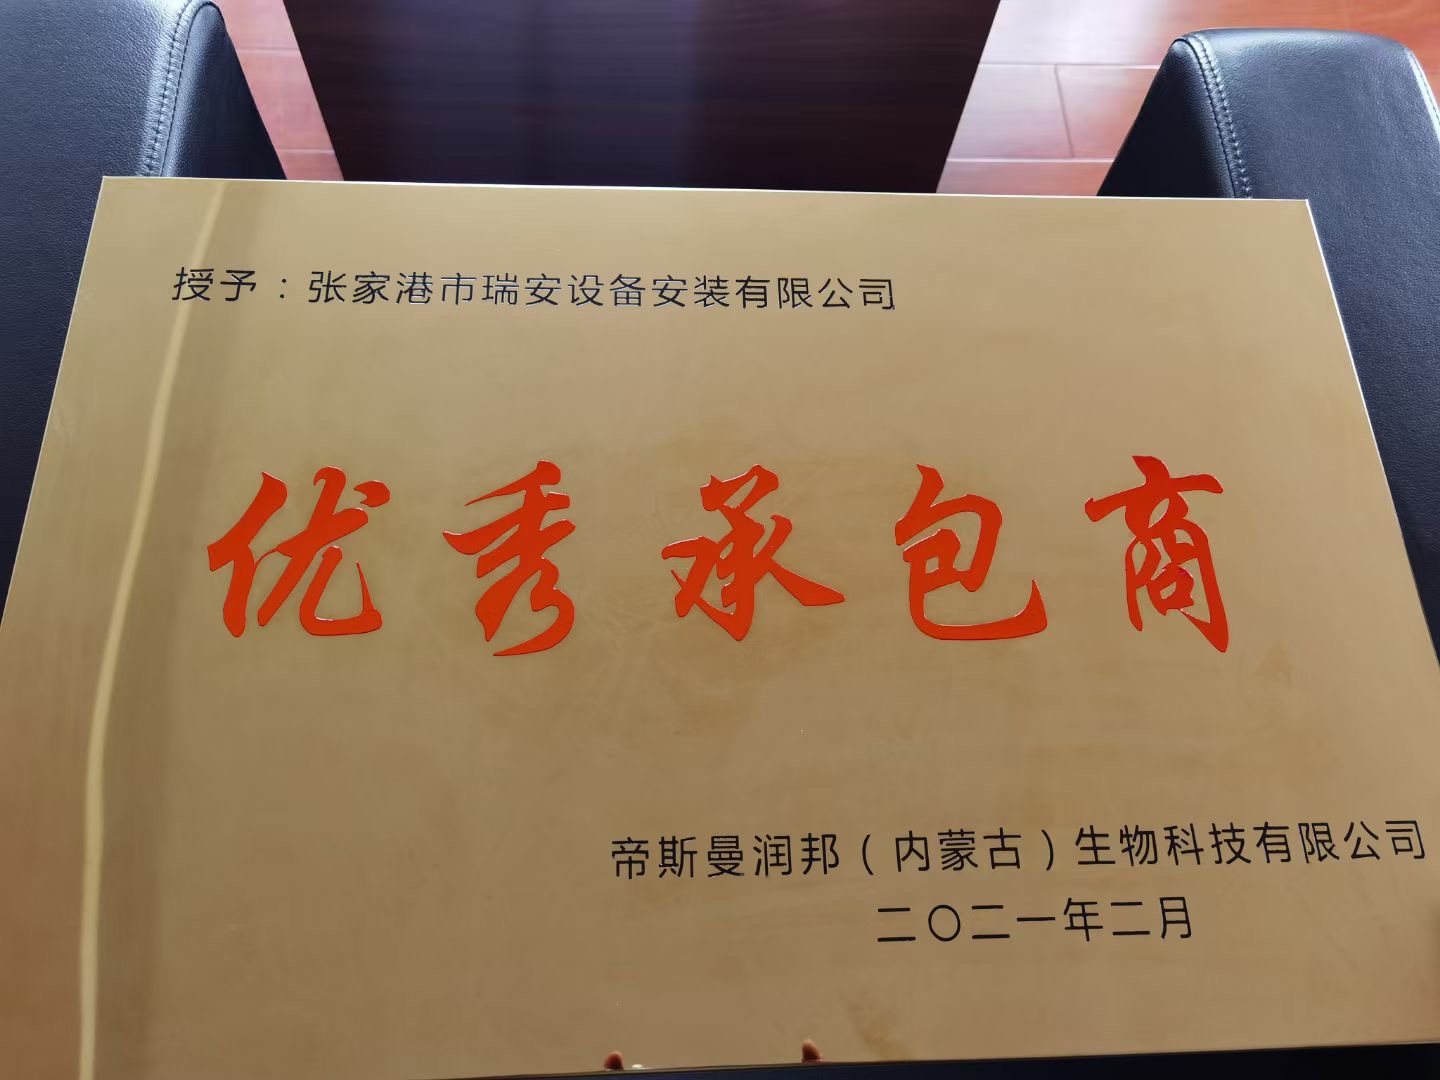 授予：张家港市瑞安设备安装有限公司
优秀承包商
帝斯曼润邦（内蒙古）生物科技有限公司
二〇二一年二月